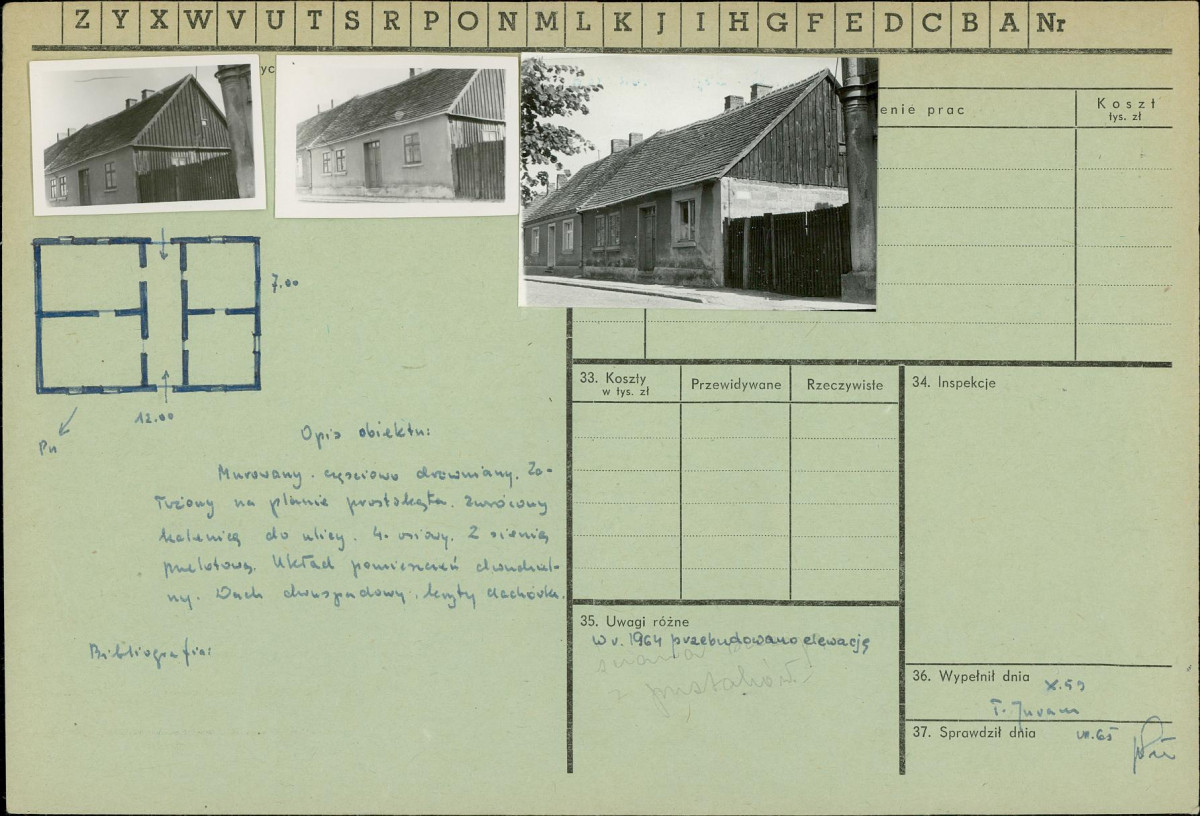 Z Y X W V U T S R P O N M L K J I H G F E D C B A Nr
yc
enie prac
Koszt
tys. zł
7.00
12.00
Pn
Opis obiektu:
Murowany. częściowo drewniany. Za-
łożony na planie prostokąta. zwrócony
kalenicą do ulicy. 4. osiowy. Z sienią
przelotową. Układ pomieszczeń dwutrak-
ny. Dach dwuspadowy. kryty dachówką.
Bibliografia:
33. Koszty
w tys. zł
Przewidywane
Rzeczywiste
34. Inspekcje
35. Uwagi różne
W r. 1964 przebudowano elewację
ściana
z pustaków
36. Wypełnił dnia
X.59
37. Sprawdził dnia
VII.65